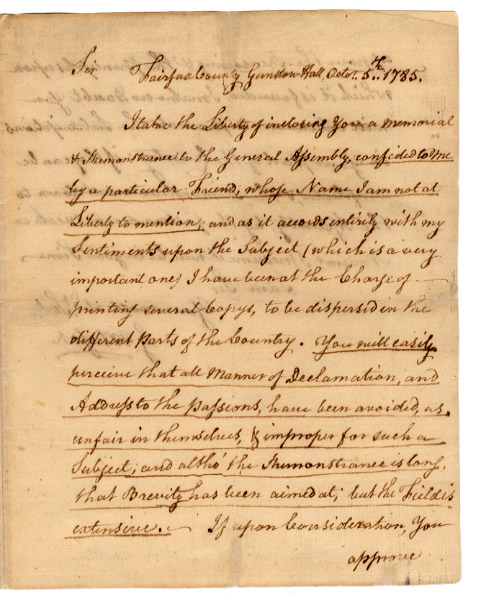 Sir Fairfax County Gunston-Hall Octor. 5th. 1785.
I take the Liberty of inclosing You a Memorial
& Remonstrance to the General Assembly, confided to me
by a particular Friend, whose Name I am not at
Liberty to mention; and as it accords entirely with my
Sentiments upon the Subject (which is a very
important one) I have been at the Charge of
printing several Copys, to be dispersed in the
different parts of the Country. You will easily
perceive that all Manner of Declamation, and
Address to the Passions, have been avoided, as
unfair in themselves, & improper for such a
Subject; and altho' the Remonstrance is long,
that Brevity has been aimed at; but the Field is
extensive. If upon Consideration, You
approve